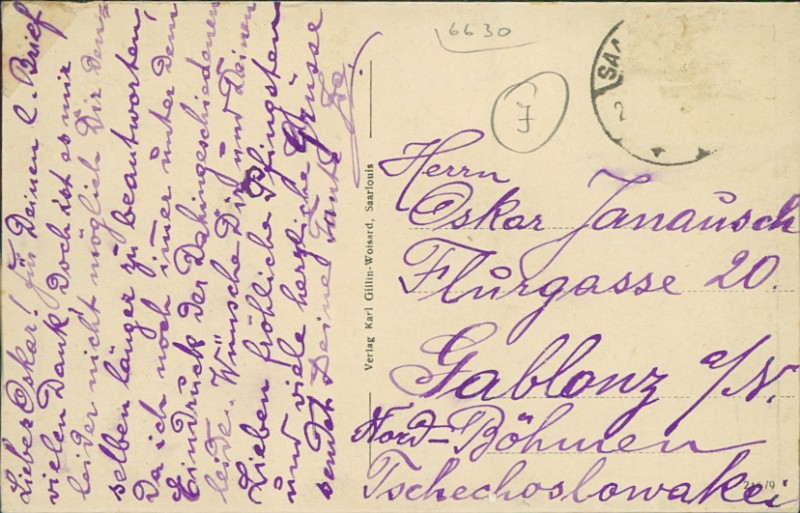 Lieber Oskar! für Deinen l. Brief
vielen Dank. Doch ist es mir
leider nicht möglich Dir den=
selben länger zu beantworten,
Da ich noch imer unter dem
Eindruck der Dahingeschiedenen
leide. Wünsche Dir und Deinen
Lieben fröhliche Pfingsten
und viele herzliche Grüsse
sendet Deine Tante
Verlag Karl Gillin-Woisard, Saarlouis
6630
J
SAA
2
Herrn
Oskar Janausch
Flurgasse 20.
Gablonz a/N.
Nord-Böhmen
Tschechoslowakei